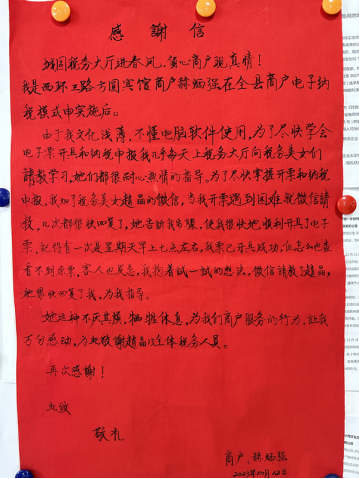 感謝信
城固税务大厅进春风，贴心商户现真情！
我是西环三路方圆宾馆商户赫炳强在全县商户电子纳
税模式申实施后。
由于我文化浅薄，不懂电脑软件使用，为了尽快学会
电子票开具和纳税申报我几乎每天上税务大厅向税务美女们
请教学习，她们都很耐心热情的指导。为了尽快掌握开票和纳税
申报，我加了税务美女赵晶的微信，当我开票遇到困难就微信请
教，几次都很快回复了，她告诉我步骤，使我很快地顺利开具了电子
票，记得有一次是星期天早上七点左右，我票已开具成功，但怎么也查
看不到原票，客人也着急，我抱着试一試的想法，微信请教了赵晶，
她很快回复了我，为我指导。
她这种不厌其烦，牺牲休息，为我们商户服务的行为，让我
万分感动，为此致谢赵晶以全体税务人员。
再次感謝！
此致
敬礼
商户：赫炳强
2023年10月12日